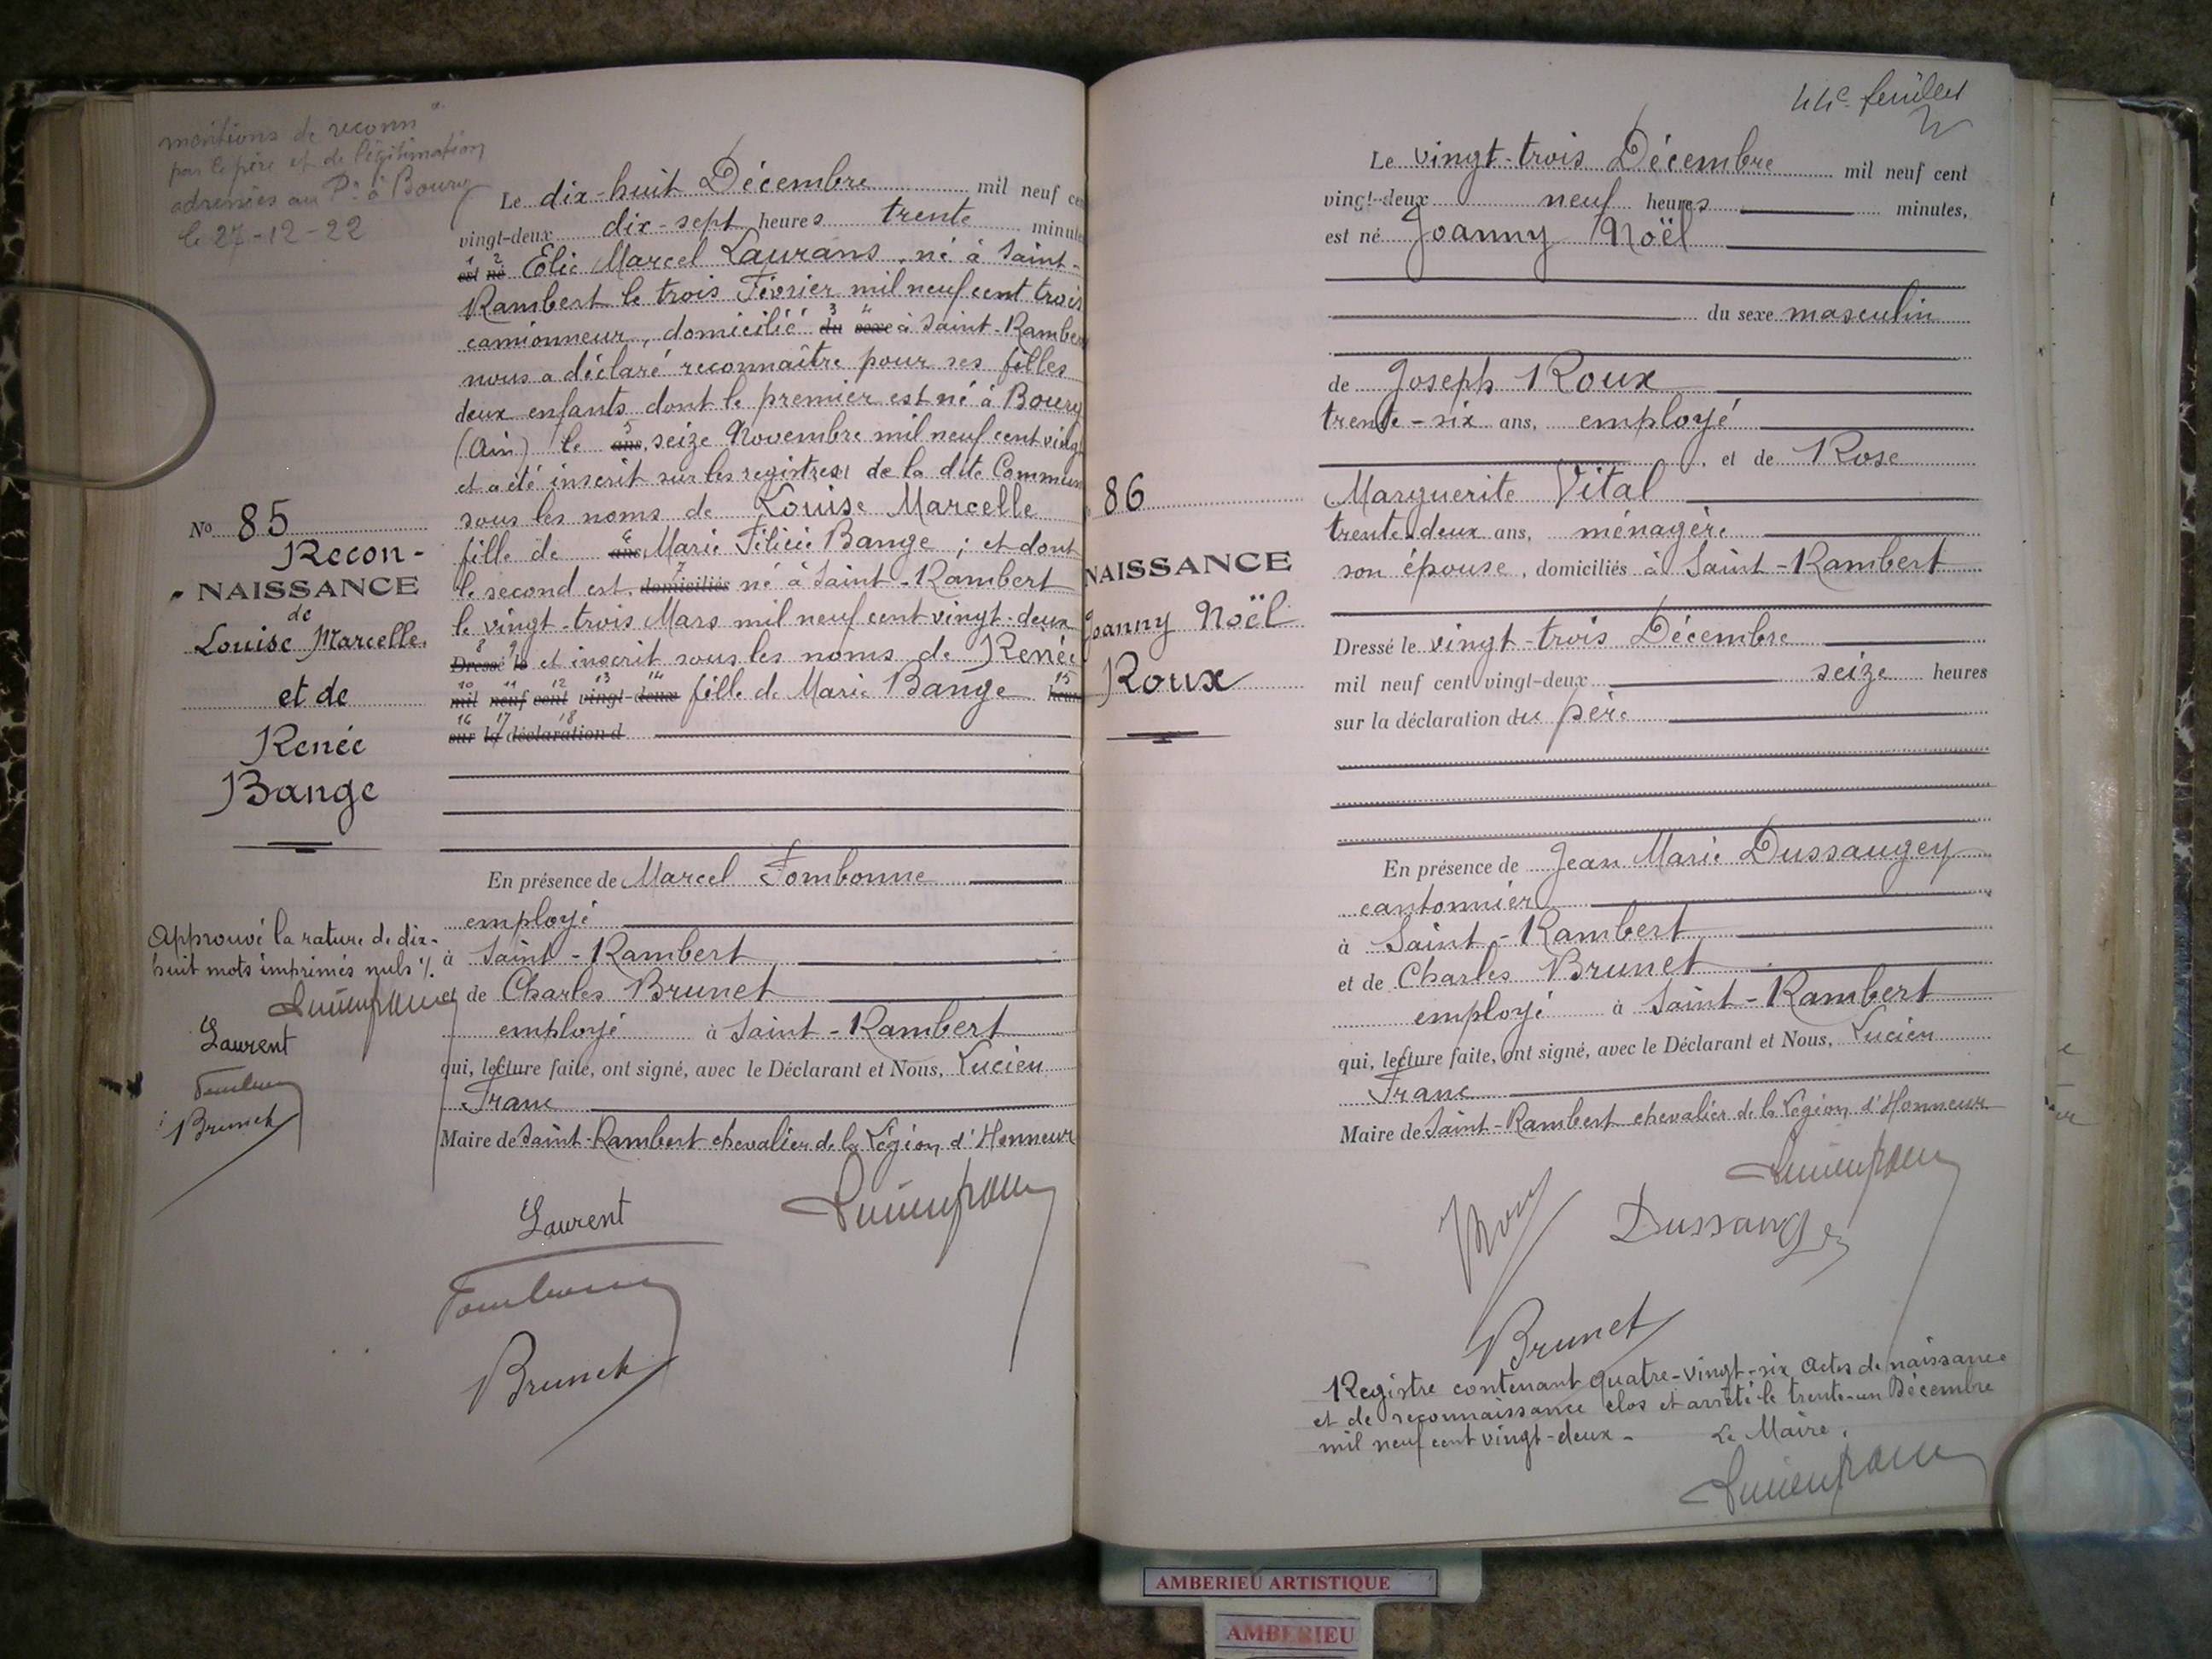 mentions de reconn on
par le père et de légitimation
adressées au Pr. à Bourg
le 27-12-22
No 85
Recon-
NAISSANCE
de
Louise Marcelle
et de
Renée
Bange
Approuvé la rature de dix-
huit mots imprimés nuls %.
Lucien franc
Laurent
Brunet
Le dix-huit Décembre mil neuf ce
vingt-deux dix-sept heures trente minute
1 2
est né Elie Marcel Laurans, né à Saint-
Rambert le trois Février mil neuf cent trois
camionneur, domicilié du 3 sexe 4 à Saint-Ramber
nous a déclaré reconnaître pour ses filles
deux enfants dont le premier est né à Bourg
(Ain) le ans 5, seize Novembre mil neuf cent vingt
et a été inscrit sur les registres de la dite Commun
sous les noms de Louise Marcelle
fille de ans 6 Marie Félicie Bange ; et dont
le second est domiciliés 7 né à Saint-Rambert
le vingt-trois Mars mil neuf cent vingt-deux
8 9
Dressé le et inscrit sous les noms de Renée
10 11 12 13 14 15
mil neuf cent vingt-deux fille de Marie Bange heure
16 17 18
sur la déclaration d
En présence de Marcel Fombonne
employé
à Saint-Rambert
et de Charles Brunet
employé à Saint-Rambert
qui, lecture faite, ont signé, avec le Déclarant et Nous, Lucien
Franc
Maire de Saint-Rambert chevalier de la Légion d'Honneur
Laurent Lucien franc
Fombonne
Brunet
44e feuillet
86
NAISSANCE
Joanny Noël
Roux
Le vingt-trois Décembre mil neuf cent
vingt-deux neuf heures minutes,
est né Joanny Noël
du sexe masculin
de Joseph Roux
trente-six ans, employé
, et de Rose
Marguerite Vital
trente-deux ans, ménagère
son épouse, domiciliés à Saint-Rambert
Dressé le vingt-trois Décembre
mil neuf cent vingt-deux seize heures
sur la déclaration du père
En présence de Jean Marie Dussaugey
cantonnier
à Saint-Rambert
et de Charles Brunet
employé à Saint-Rambert
qui, lecture faite, ont signé, avec le Déclarant et Nous, Lucien
Franc
Maire de Saint-Rambert chevalier de la Légion d'Honneur
Lucien franc
Dussaugey
Brunet
Registre contenant quatre-vingt-six actes de naissance
et de reconnaissance clos et arrêté le trente-un Décembre
mil neuf cent vingt-deux - Le Maire,
Lucien franc
AMBERIEU ARTISTIQUE
AMBERIEU